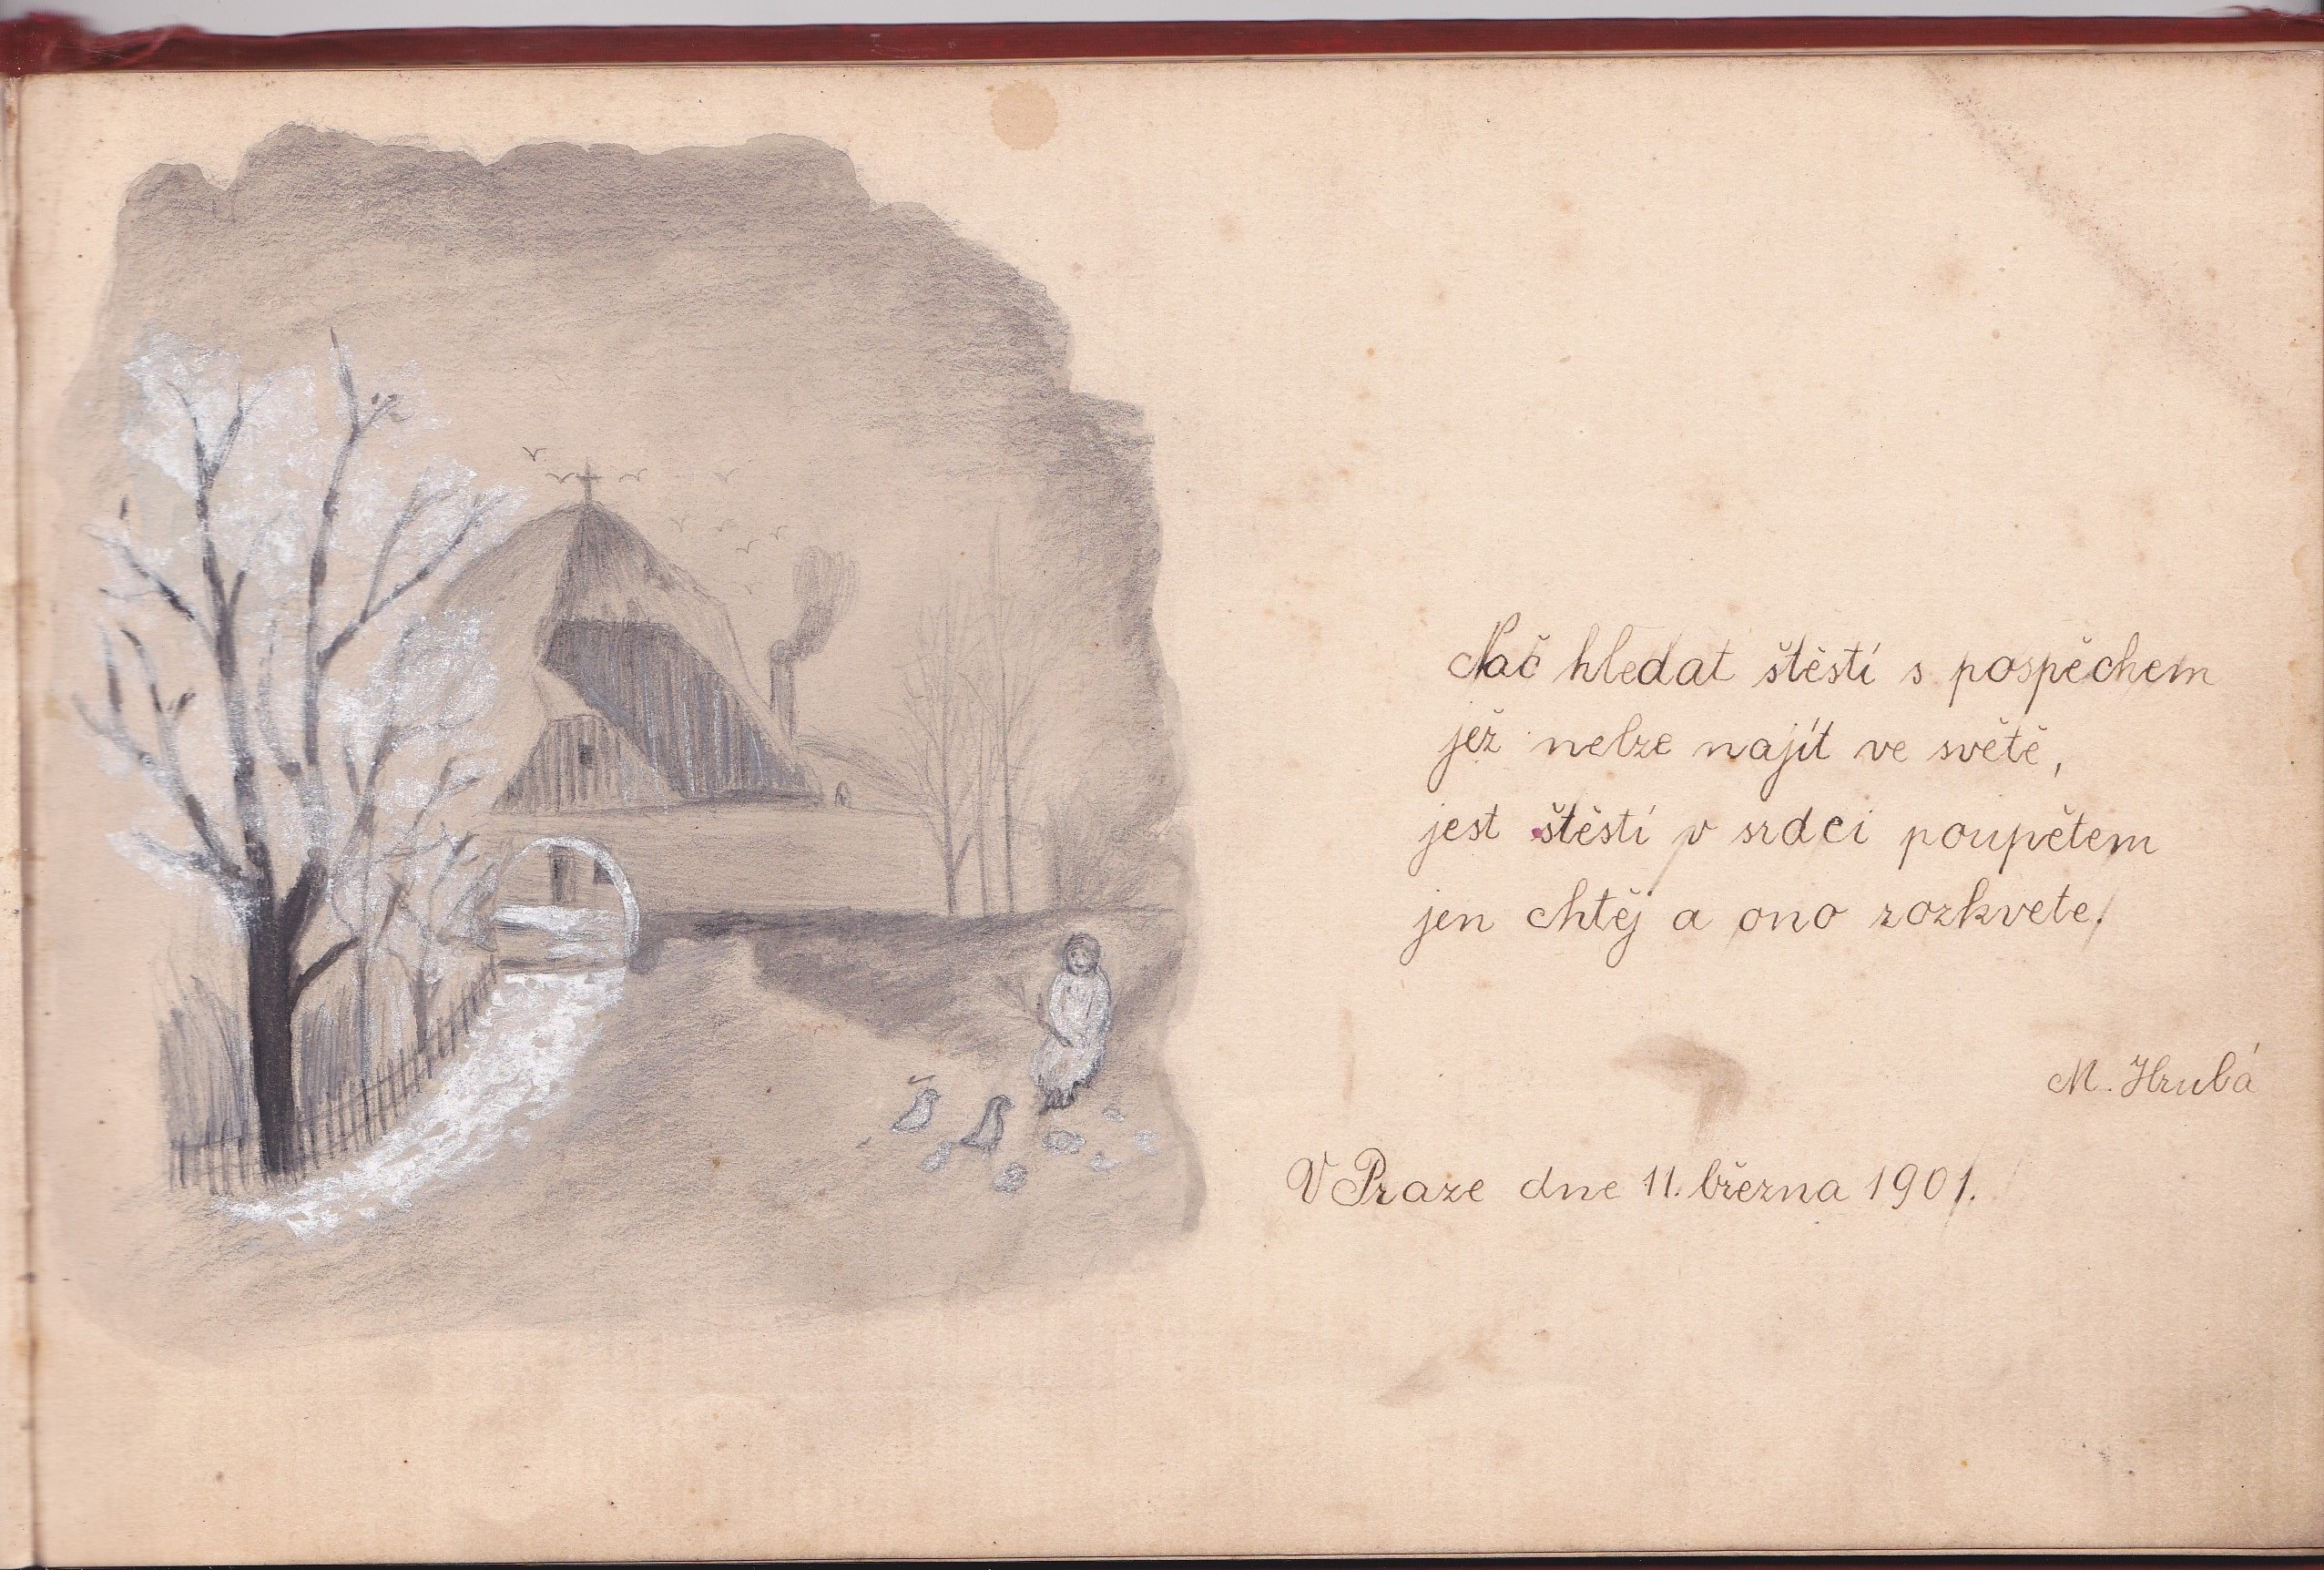 Nač hledat štěstí s pospěchem
jež nelze najít ve světě,
jest štěstí v srdci poupětem
jen chtěj a ono rozkvete!
M. Hrubá
V Praze dne 11. března 1901.